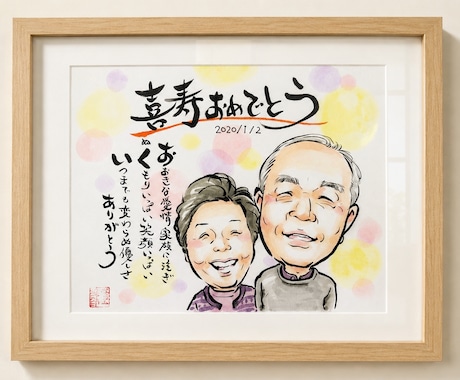 喜寿おめでとう
2020/1/2
おおきな愛情 家族に注ぎ
ぬくもりいっぱい 笑顔いっぱい
いつまでも変わらぬ優しさ
ありがとう